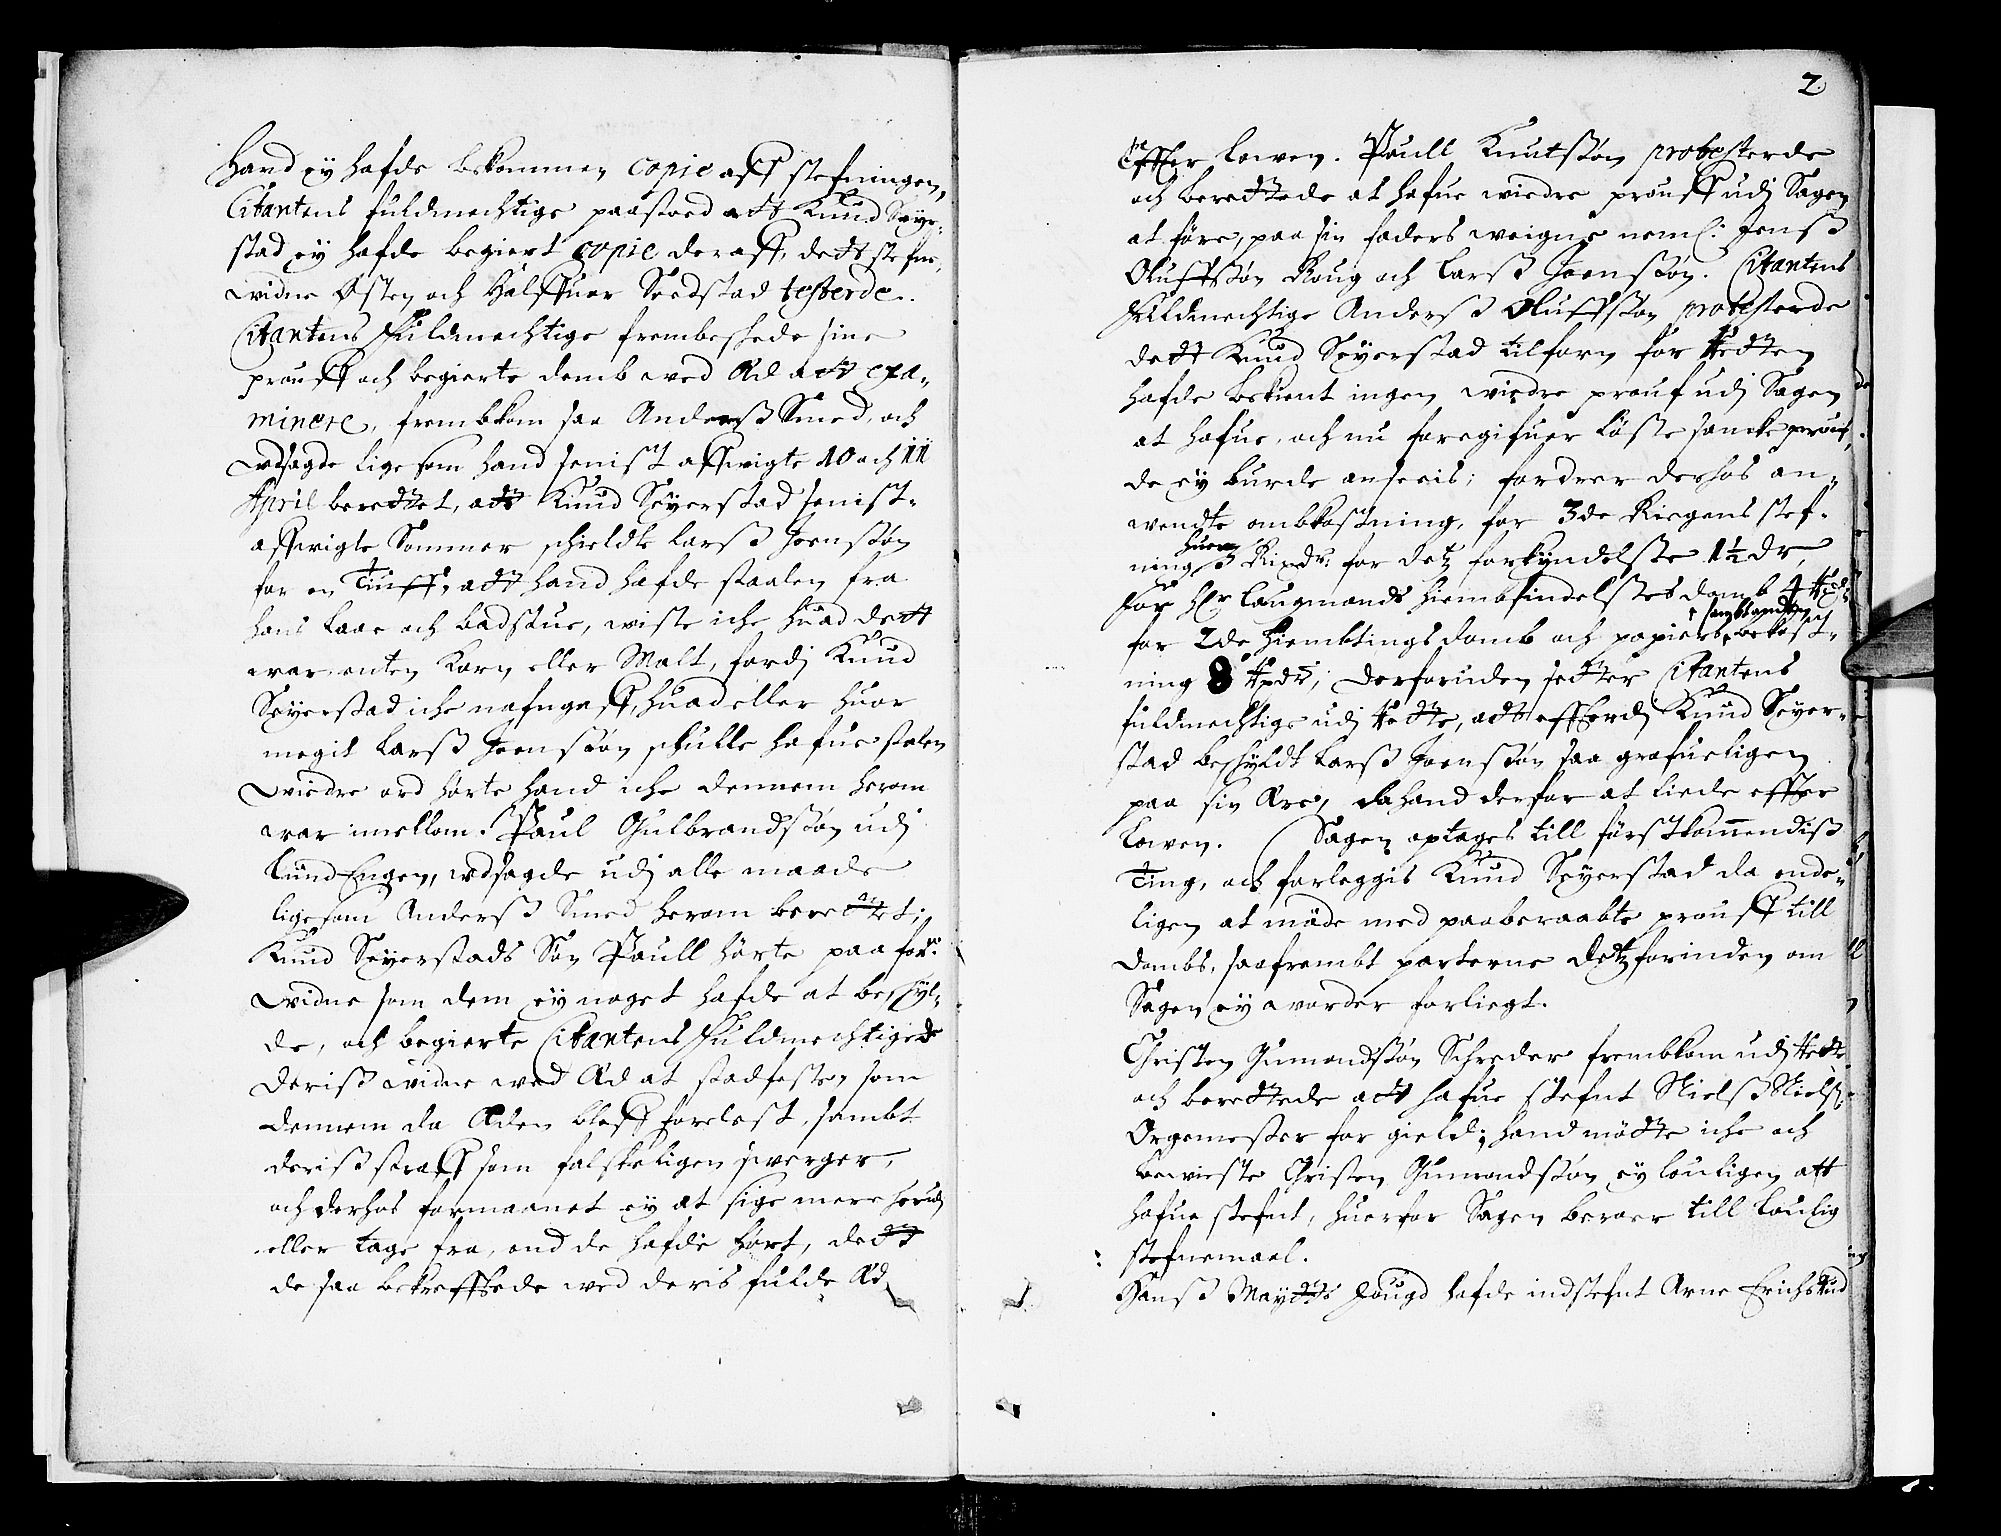 Hand ey hafde bekommen copie aff stefningen,
Citantens fuldmechtige paastoed att Knud Seyer-
stad ey hafde begiert copie deraff, dett stefne,
widne Østen och Halffuor Seedstad testerde.
Citantens Fuldmechtige frembeskede sine
prouff och begierte demb wed Æd att exa-
minere, frembkom saa Anderss Smed, och
udsagde lige som hand senist affwigte 10 och 11
April berettet, att Knud Seyerstad senist-
affwigte Sommer schieldte Larss Joenssøn
for en Tiuff, att hand hafde staalen fra
hans Laae och badstue, wiste iche huad dett
war enten Korn eller Malt, fordj Knud
Seyerstad iche nafngaff, huad eller huor
megit Larss Joenssøn schulle hafue stalen
widre ord hørte hand iche dennem herom
war imellom. Paul Gulbrandssøn udj
Lund Engen, udsagde udj alle maade
lige som Anderss Smed herom berettet;
Knud Seyerstads Søn Paull hørte paa forne
widne som dem ey noget hafde at beschyl-
de, och begierte Citantens Fuldmechtige
deriss widne wed Æd at stadfesten som
dennem da Æden bleff forelæst, sambt
deriss straff som falskeligen swerger,
och derhos formaanet ey at sige mere herudj
eller tage fra, end de hafde hørt, dett
de saa bekrefftede wed deris fulde Æd
2
effter lowen. Paull Knutssøn protesterde
och berettede at hafue widre prouff udj Sagen
at føre, paa sin faders weigne neml: Jenss
Oluffssøn Roug och Larss Joenssøn. Citantens
Fuldmechtige Anderss Oluffssøn protesterde
dett Knud Seyerstad tilforn for Retten
hafde bekient ingen widre prouf udj Sagen
at hafue, och nu foregifuer løste snacke prouf,
de ey burde anseeis; fordrer derhos an-
wendte ombkostning, for 3de Riegens stef-
ning huer 3 Rixdr: for detz forkyndelsse 1½ dr,
for Hr Laugmands hiembfindelsses domb 4 Rdr
for 2de Hiembtings domb och papiers sambt anden bekost-
ning 8 Rixdr, derforuden setter Citantens
fuldmechtige udj Rette, att efftterdj Knud Seyer-
stad beschyldt Larss Joenssøn saa grofueligen
paa sin Ære, da hand derfor at liede effter
Lowen. Sagen optages till førstkommendiss
Ting, och forleggis Knud Seyerstad da ende-
ligen at møde med paaberaabte prouff till
dombs, saafrembt parterne detz forinden om
Sagen ey worder forliegt.
Christen Gumondssøn Schreder frembkom udj Rette
och berettede att hafue stefnt Nielss Nielss:
Orgemester for gield; hand møtte iche och
bewieste Christen Gumondssøn ey louligen att
hafue stefnt, huorfor Sagen beroer till Loulig
stefnemaal.
Hanss Maydts Fougd hafde indstefnt Arne Erichsrud